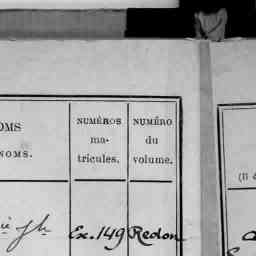 OMS
NOMS.
NUMÉROS
ma-
tricules.
NUMÉRO
du
volume.
(Il
Ex. 149 Redon